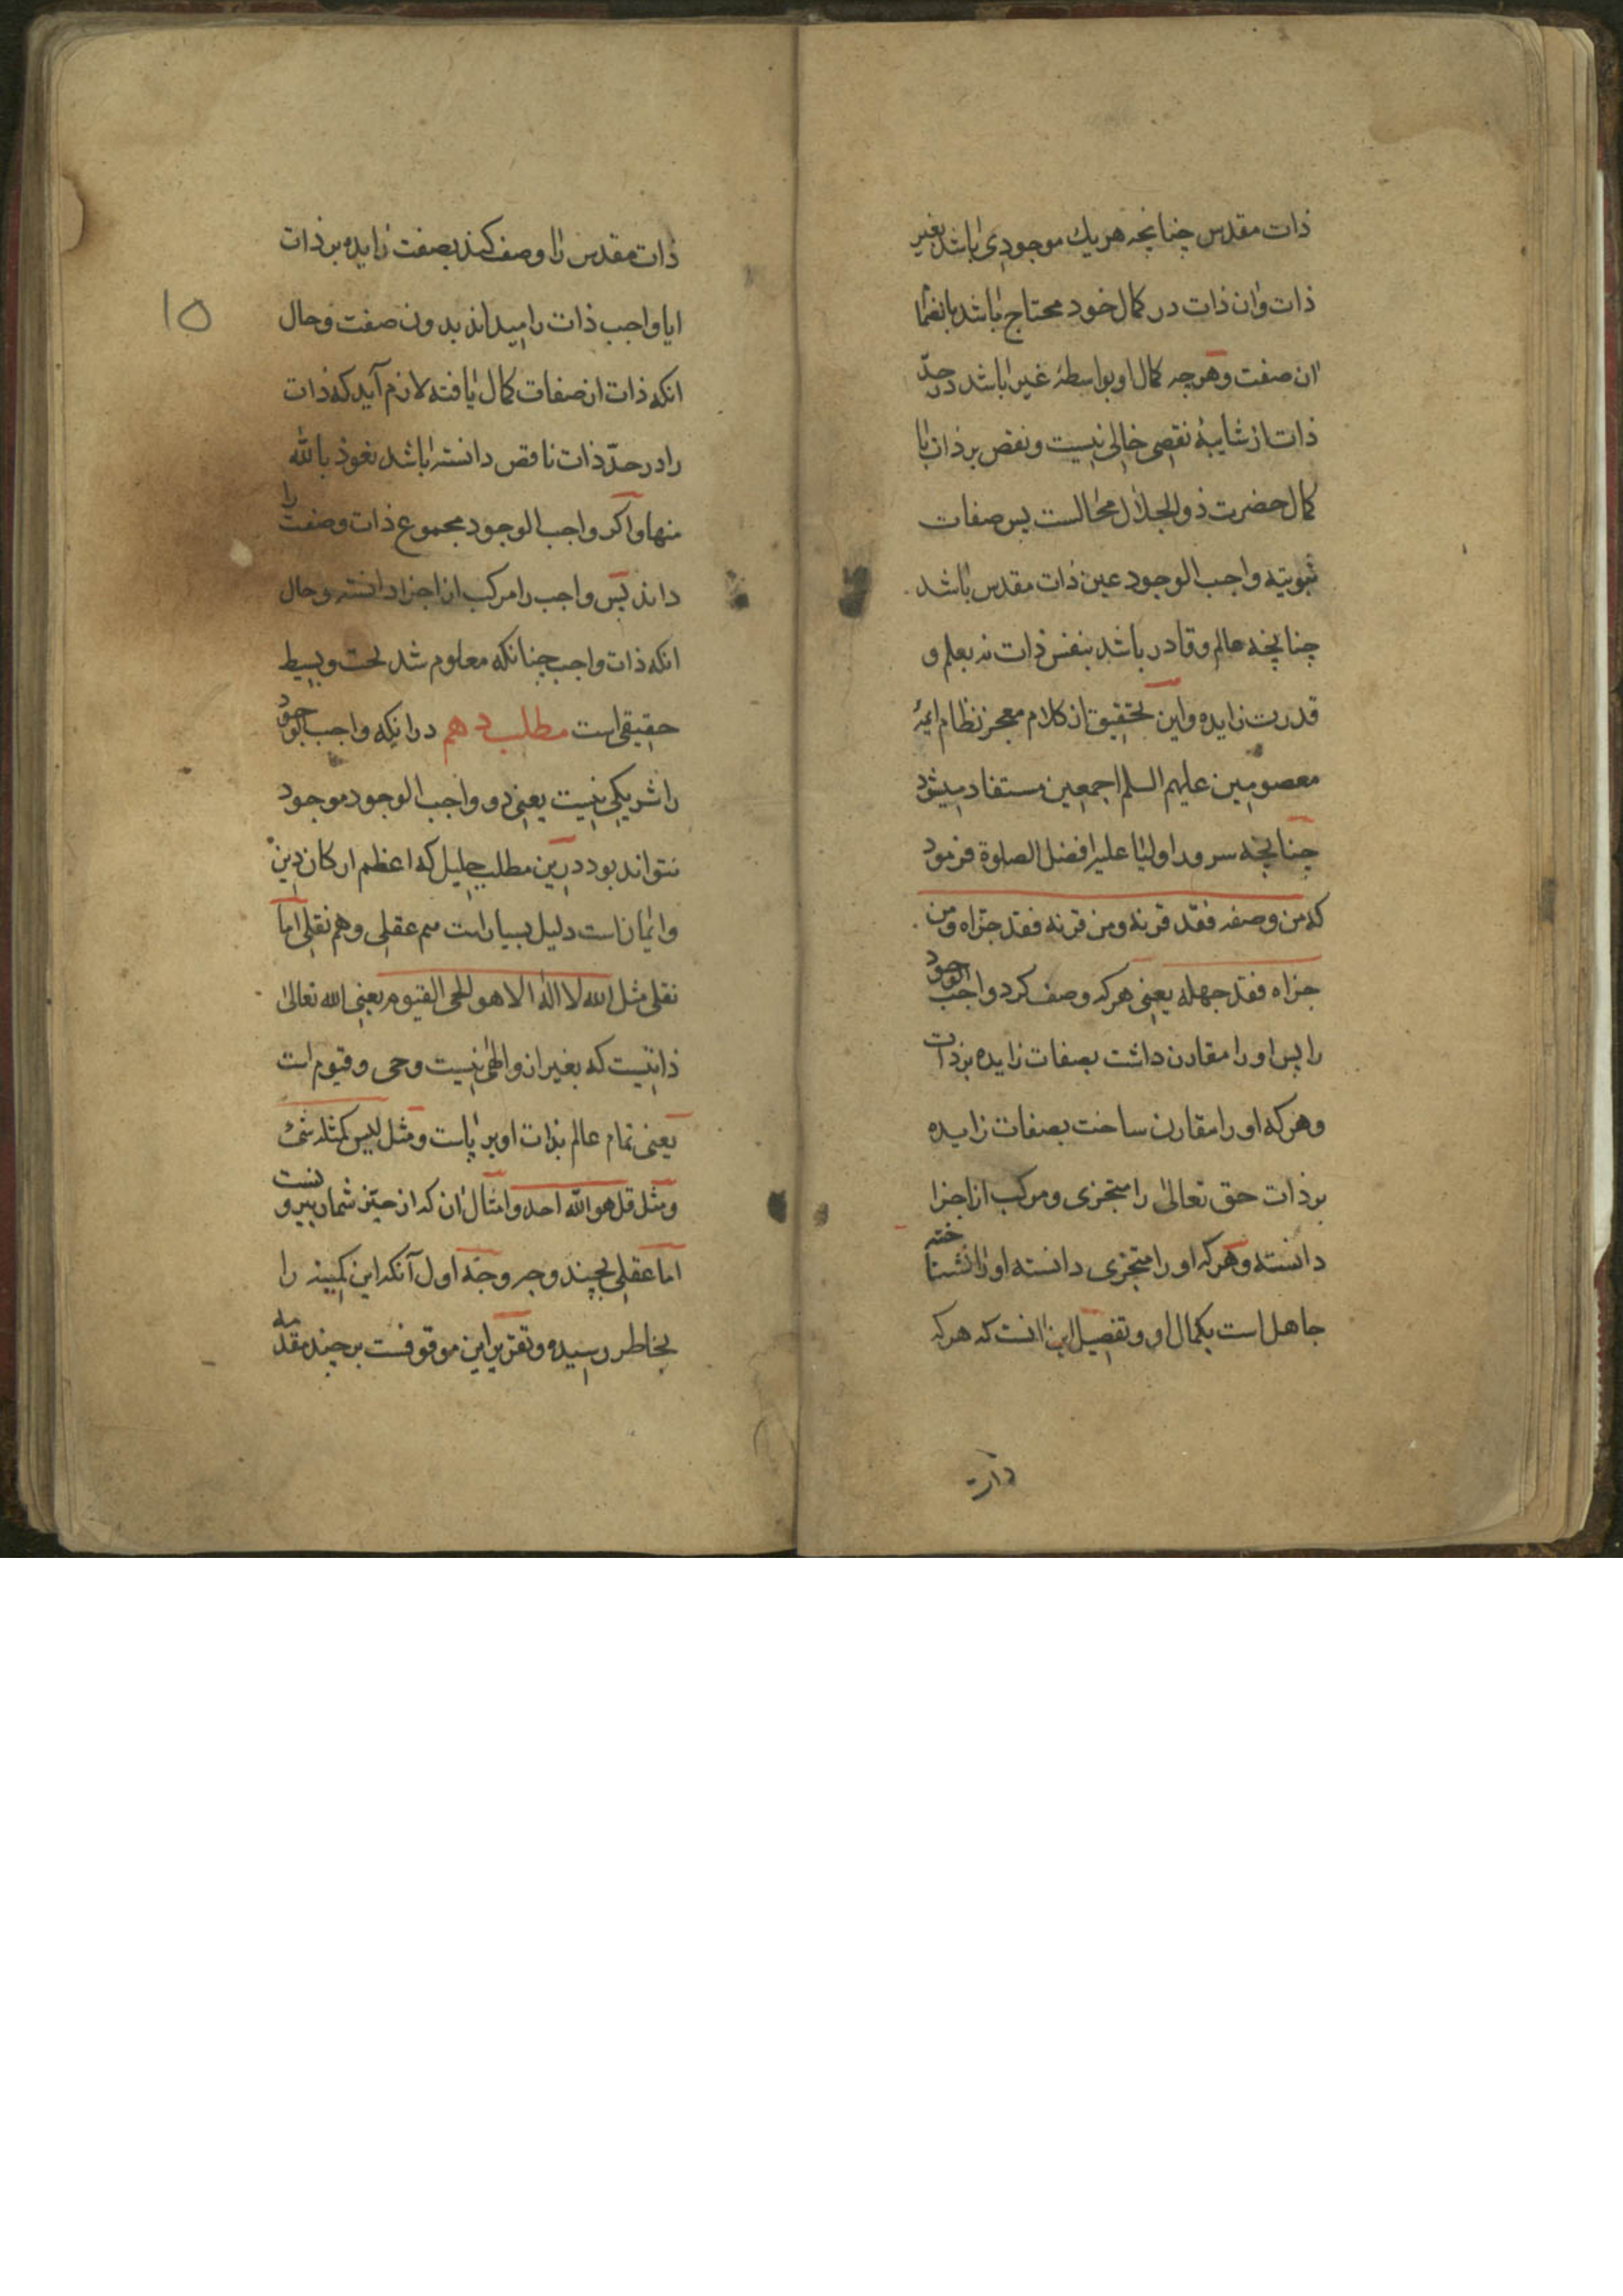 ذات مقدس چنانچه هر یك موجودی باشد بغیر
ذات و ان ذات در کمال خود محتاج باشد بانضما
ان صفت و هر چه کمال او بواسطهٔ غیر باشد در حدّ
ذات از شایبهٔ نقصی خالی نیست و نقص بر ذات با
کمال حضرت ذو الجلال محالست پس صفات
ثبوتیه واجب الوجود عین ذات مقدس باشد
چنانچه عالم و قادر باشد بنفس ذات نه بعلم و
قدرت زایده و این تحقیق از کلام معجز نظام ایمهٔ
معصومین علیهم السلم اجمعین مستفاد میشود
چنانچه سرور اولیا علیه افضل الصلوة فرمود
که من وصفه فقد قرنه و من قرنه فقد جزاه و من
جزاه فقد جهله یعنی هر که وصف کرد واجب الوجود
را پس او را مقارن داشت بصفات زایده بر ذات
و هر که او را مقارن ساخت بصفات زایده
بر ذات حق تعالی را متجزی و مرکب از اجزا
دانسته و هر که او را متجزی دانسته او را نشناخته
جاهل است بکمال او و تفصیل این انست که هر که
ذات
ذات مقدس را وصف کند بصفت زایده بر ذات
ایا واجب ذات را میداند بدون صفت و حال
انکه ذات از صفات کمال یافته لازم آید که ذات
را در حدّ ذات ناقص دانسته باشد نعوذ بالله
منها و اکر واجب الوجود مجموع ذات و صفت را
داند پس واجب را مرکب از اجزا دانسته و حال
انکه ذات واجب چنانکه معلوم شد بحت و بسیط
حقیقی است مطلب دهم در انکه واجب الوجود
را شریکی نیست یعنی دو واجب الوجود موجود
نتواند بود درین مطلب جلیل که اعظم ارکان دین
و ایمان است دلیل بسیار است هم عقلی و هم نقلی اما
نقلی مثل الله لا اله الا هو الحی القیوم یعنی الله تعالی
ذاتیست که بغیر از و الهی نیست و حی و قیوم است
یعنی تمام عالم بذات او بر پاست و مثل لیس کمثله شئ
و مثل قل هو الله احد و امثال ان که از حیز شمار بیرونست
اما عقلی بچند وجه وجه اول آنکه این کمینه را
بخاطر رسیده و تقریر این موقوفست بر چند مقدمه
۱۵